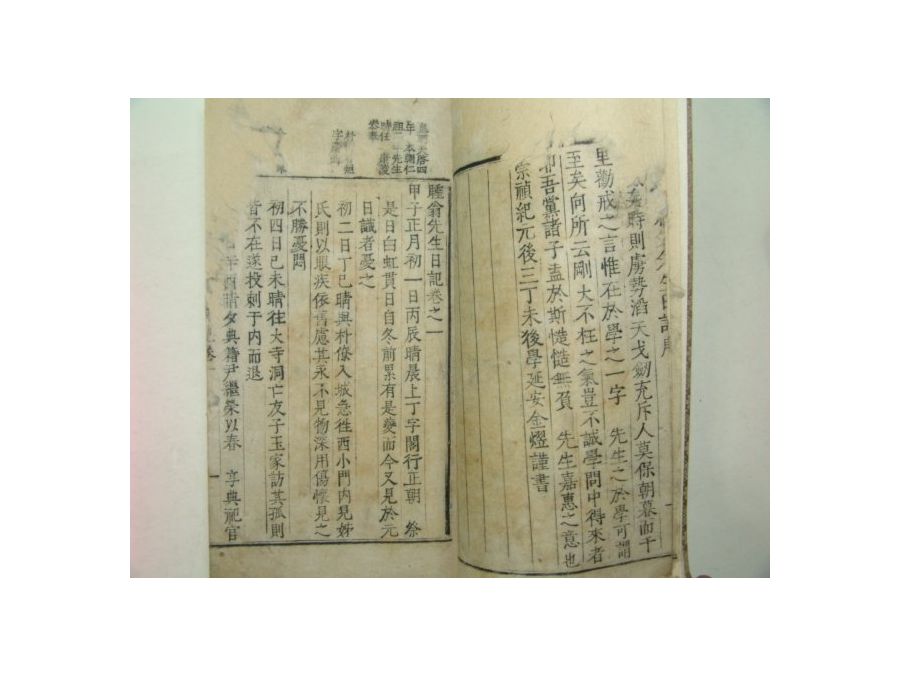 矣時則虜勢滔天戈劒充斥人莫保朝暮而干
里勸戒之言惟在於學之一字 先生之於學可謂
至矣向所云剛大不枉之氣豈不誠學問中得來者
耶吾黨諸子盍於斯慥慥無負 先生嘉惠之意也
崇禎紀元後三丁未後學延安金熤謹書
睡翁先生日記卷之一
甲子正月初一日丙辰晴晨上丁字閣行正朝 祭
是日白虹貫日自冬前累有是變而今又見於元
日識者憂之
初二日丁巳晴與朴僚入城急徃西小門內見姊
氏則以眼疾依舊處其永不見物深用傷懷見之
不勝憂悶
初四日己未晴往大寺洞亡友子玉家訪其孤則
皆不在遂投刺于內而退
辛酉晴夕典籍尹繼榮以春 享典祀官